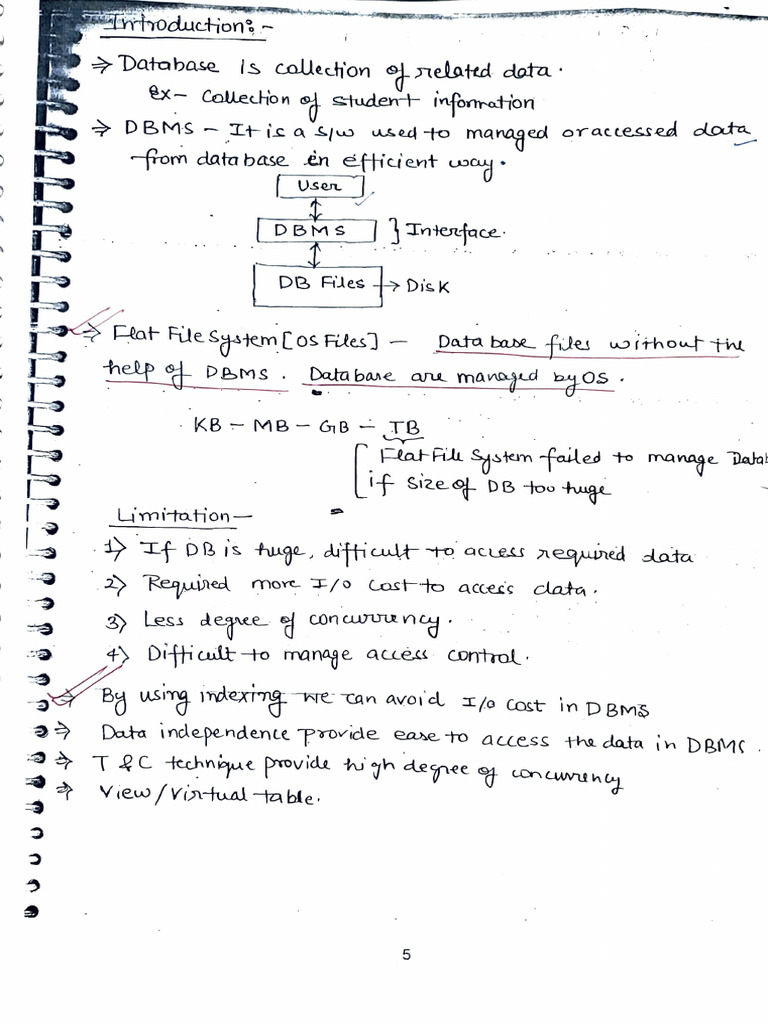 Introduction:-
⇒ Database is collection of related data.
ex- Collection of student information
⇒ DBMS - It is a s/w used to managed or accessed data
from database in efficient way.
User
DBMS } Interface.
DB Files → Disk
⇒ Flat File System [OS Files] - Database files without the
help of DBMS. Database are managed by OS.
KB - MB - GB - TB
Flat File System failed to manage Datab
if size of DB too huge
Limitation-
1) If DB is huge, difficult to access required data
2) Required more I/O cost to access data.
3) Less degree of concurrency.
4) Difficult to manage access control.
⇒ By using indexing we can avoid I/o cost in DBMS
⇒ Data independence provide ease to access the data in DBMS.
⇒ T & C technique provide high degree of concurrency
⇒ View/Virtual table.
5